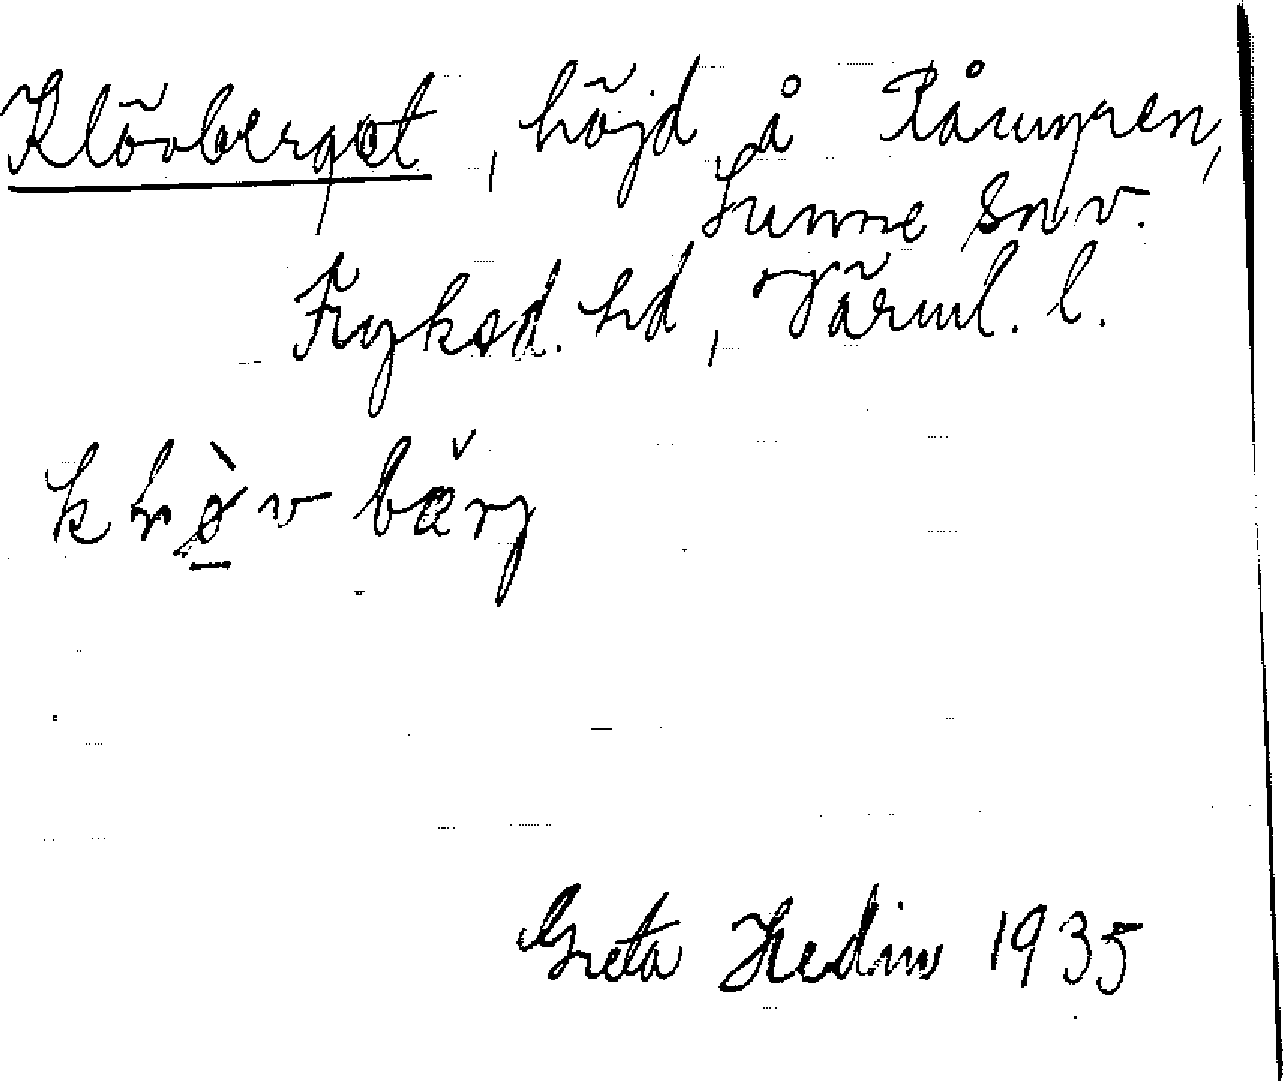 Klövberget, höjd å Råmyren,
Sunne sn v.
Fryksd. hd, Värml. l.
bärj
Greta Hedin 1935